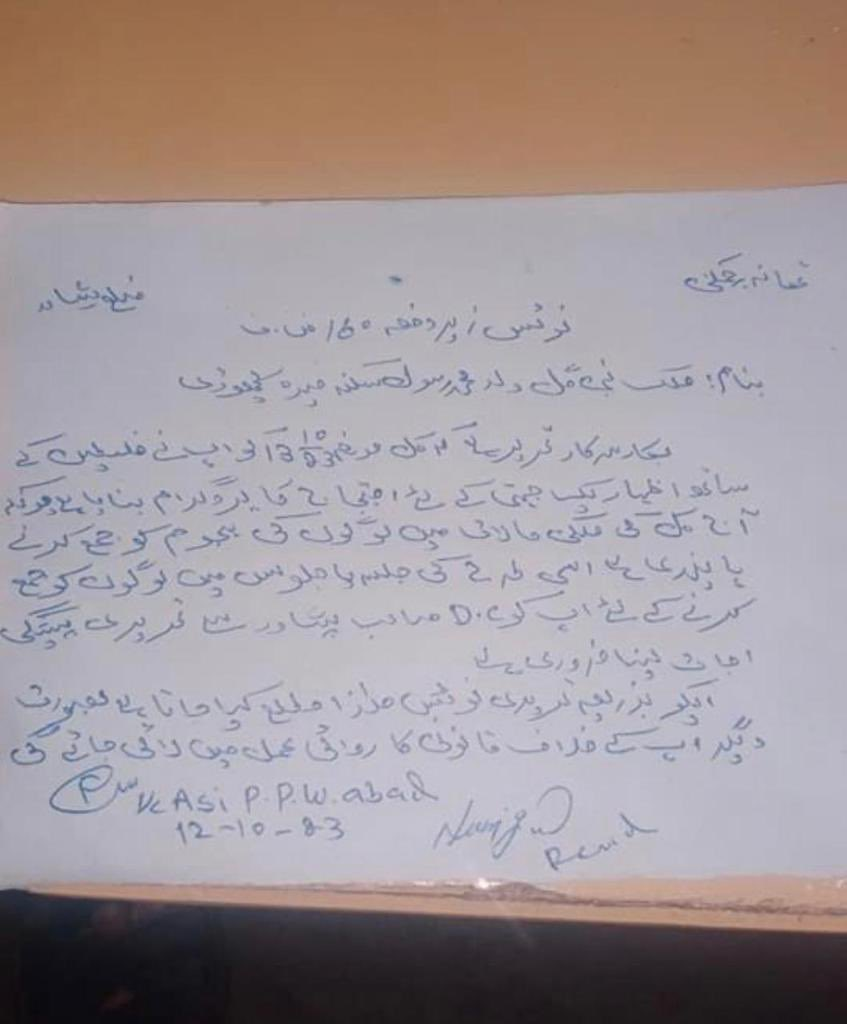 تھانہ چمکنی ضلع پشاور
نوٹس زیر دفعہ 160/ ض.ف
بنام: ملک نبی گل ولد محمد رسول سکنہ میرہ کچھوڑی
بکار سرکار تحریر ہے کہ کل مورخہ 13/10/23 کو آپ نے فلسطین کے
ساتھ اظہار یک جہتی کے لئے احتجاج کا پروگرام بنایا ہے چونکہ
آج کل کی ملکی حالات میں لوگوں کی ہجوم کو جمع کرنے
پابندی ہے اسی طرح کی جلسہ یا جلوس میں لوگوں کو جمع
کرنے کے لئے آپ کو D. صاحب پشاور سے تحریری پیشگی
اجازت لینا ضروری ہے
آپکو بذریعہ تحریری نوٹس ھذا مطلع کیا جاتا ہے بصورت
دیگر آپ کے خلاف قانونی کاروائی عمل میں لائی جائے گی
ASi P.P.W.abad
12-10-23